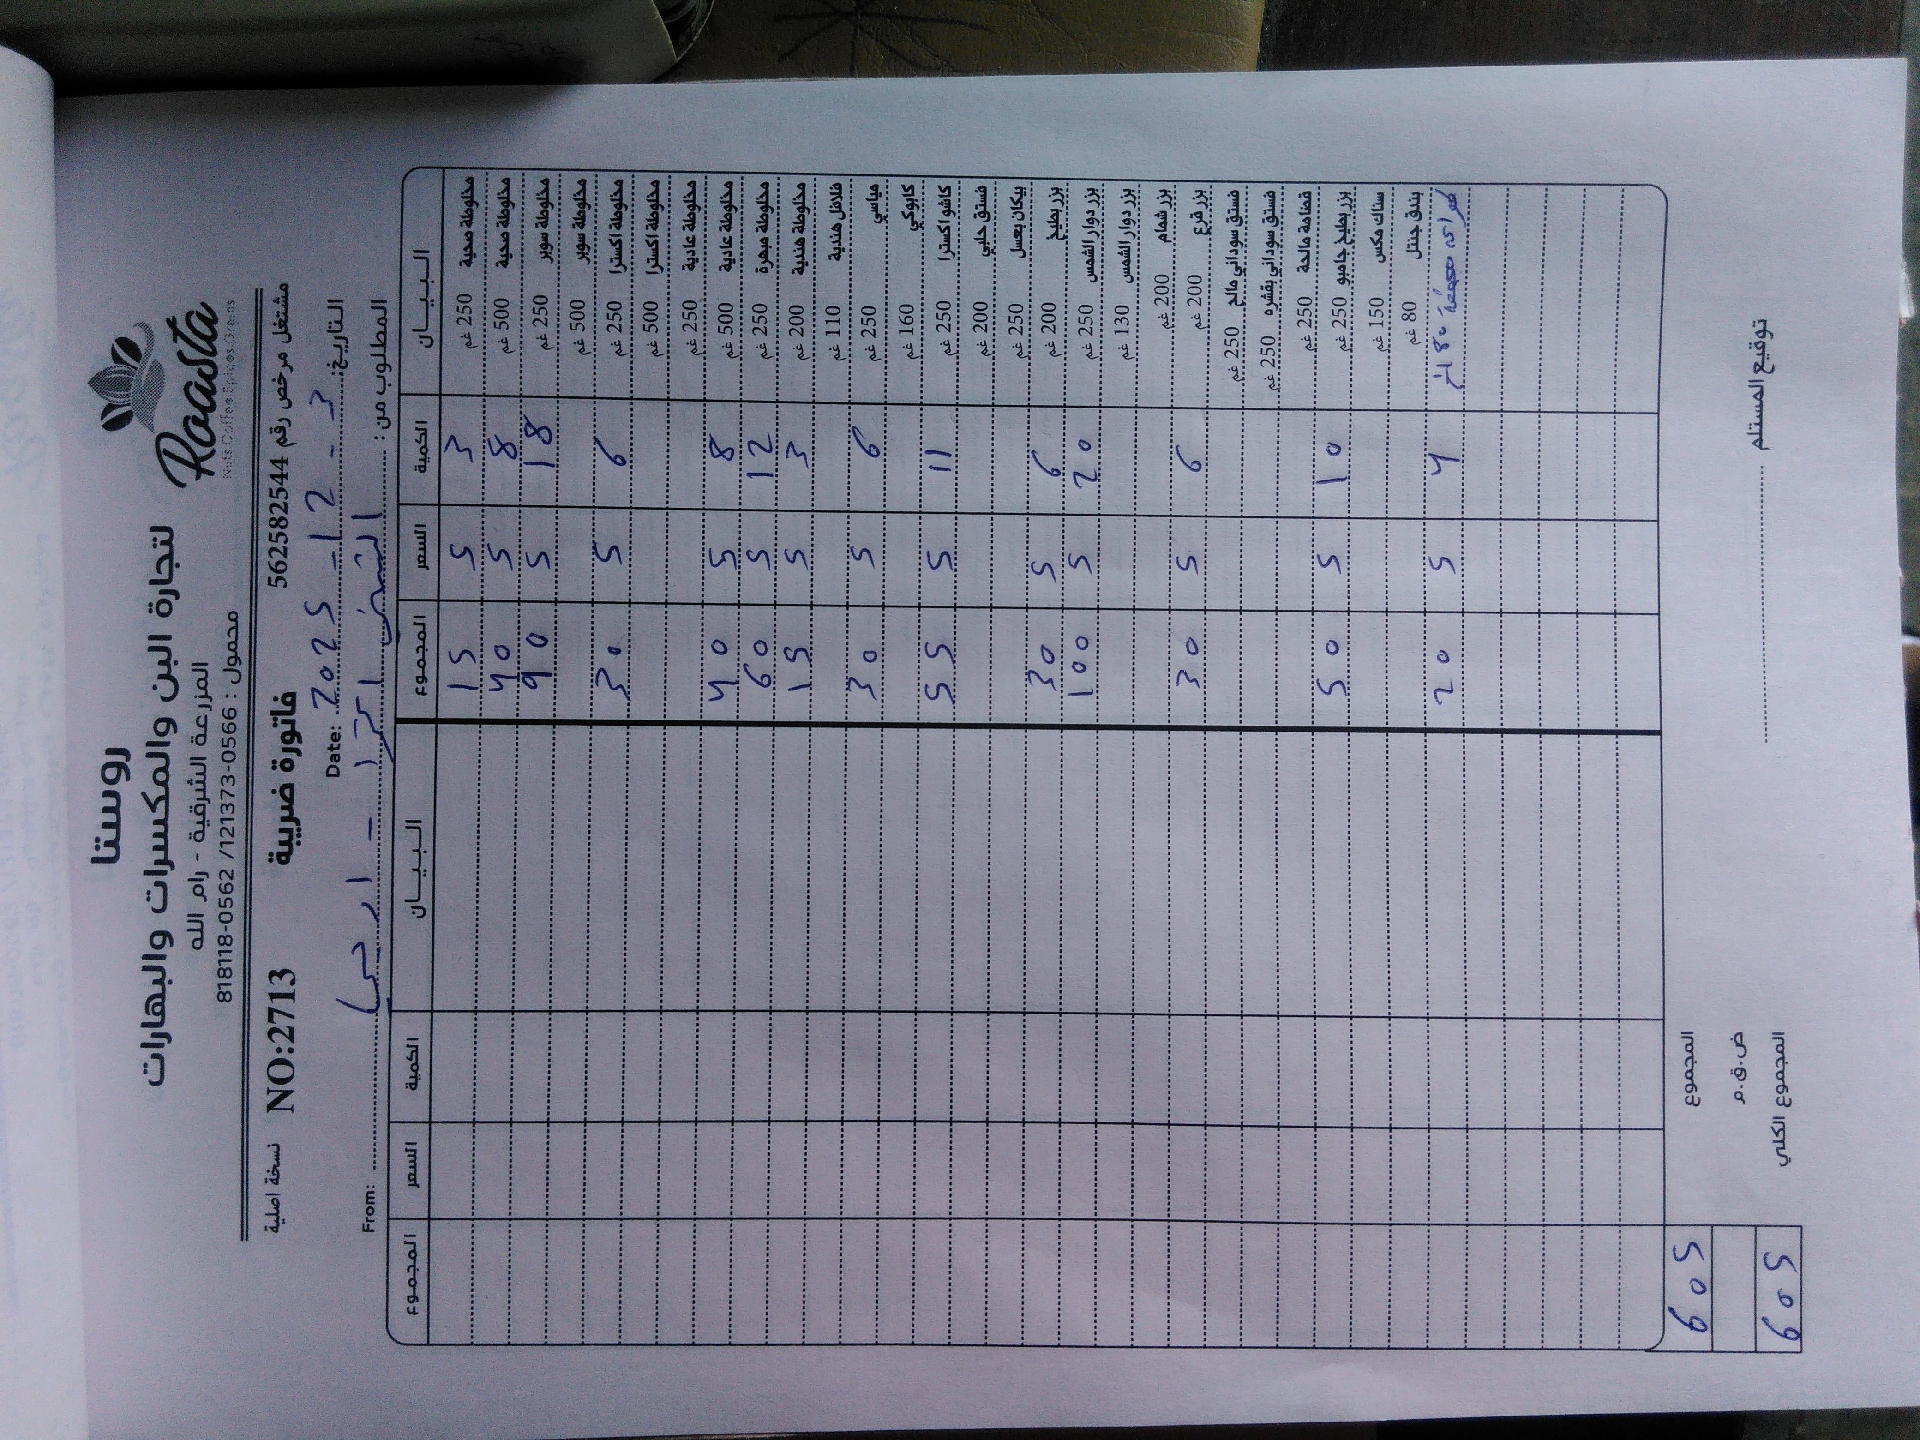 روستا
لتجارة البن والمكسرات والبهارات
المزرعة الشرقية - رام الله
محمول : 0566-121373/ 0562-818118
Roasta
Nuts.Coffee.Spices.Grains
مشتغل مرخص رقم 562582544 فاتورة ضريبية NO:2713 نسخة اصلية
التاريخ: 3 - 12 - 2025 Date:
المطلوب من : From:
البيـــان الكمية السعر المجموع البيـــان الكمية السعر المجموع
مخلوطة صحية 250 غم 3 5 15
مخلوطة صحية 500 غم 8 5 40
مخلوطة سوبر 250 غم 18 5 90
مخلوطة سوبر 500 غم
مخلوطة اكسترا 250 غم 6 5 30
مخلوطة اكسترا 500 غم
مخلوطة عادية 250 غم
مخلوطة عادية 500 غم 8 5 40
مخلوطة مبهرة 250 غم 12 5 60
مخلوطة هندية 200 غم 3 5 15
فلافل هندية 110 غم
مياسي 250 غم 6 5 30
كابوكي 160 غم
كاشو اكسترا 250 غم 11 5 55
فستق حلبي 200 غم
بيكان بعسل 250 غم
بزر بطيخ 200 غم 6 5 30
بزر دوار الشمس 250 غم 20 5 100
بزر دوار الشمس 130 غم
بزر شمام 200 غم
بزر قرع 200 غم 6 5 30
فستق سوداني مالح 250 غم
فستق سوداني بقشره 250 غم
قضامة مالحة 250 غم
بزر بطيخ جامبو 250 غم 10 5 50
سناك مكس 150 غم
بندق جنتل 80 غم
4 5 20
المجموع 605
ض.ق.م
المجموع الكلي 605
توقيع المستلم